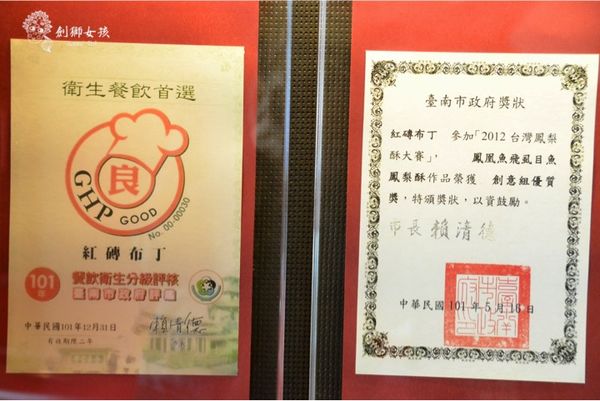 創獅女孩
衛生餐飲首選
良
GHP GOOD
No. 00-00030
紅磚布丁
101年
餐飲衛生分級評核
臺南市政府評鑑
中華民國101年12月31日
有效期限二年
賴清德
臺南市政府獎狀
紅磚布丁 參加「2012台灣鳳梨
酥大賽」, 鳳凰魚飛虱目魚
鳳梨酥作品榮獲 創意組優質
獎,特頒獎狀,以資鼓勵。
市長 賴清德
中華民國 101 年 5 月 16 日